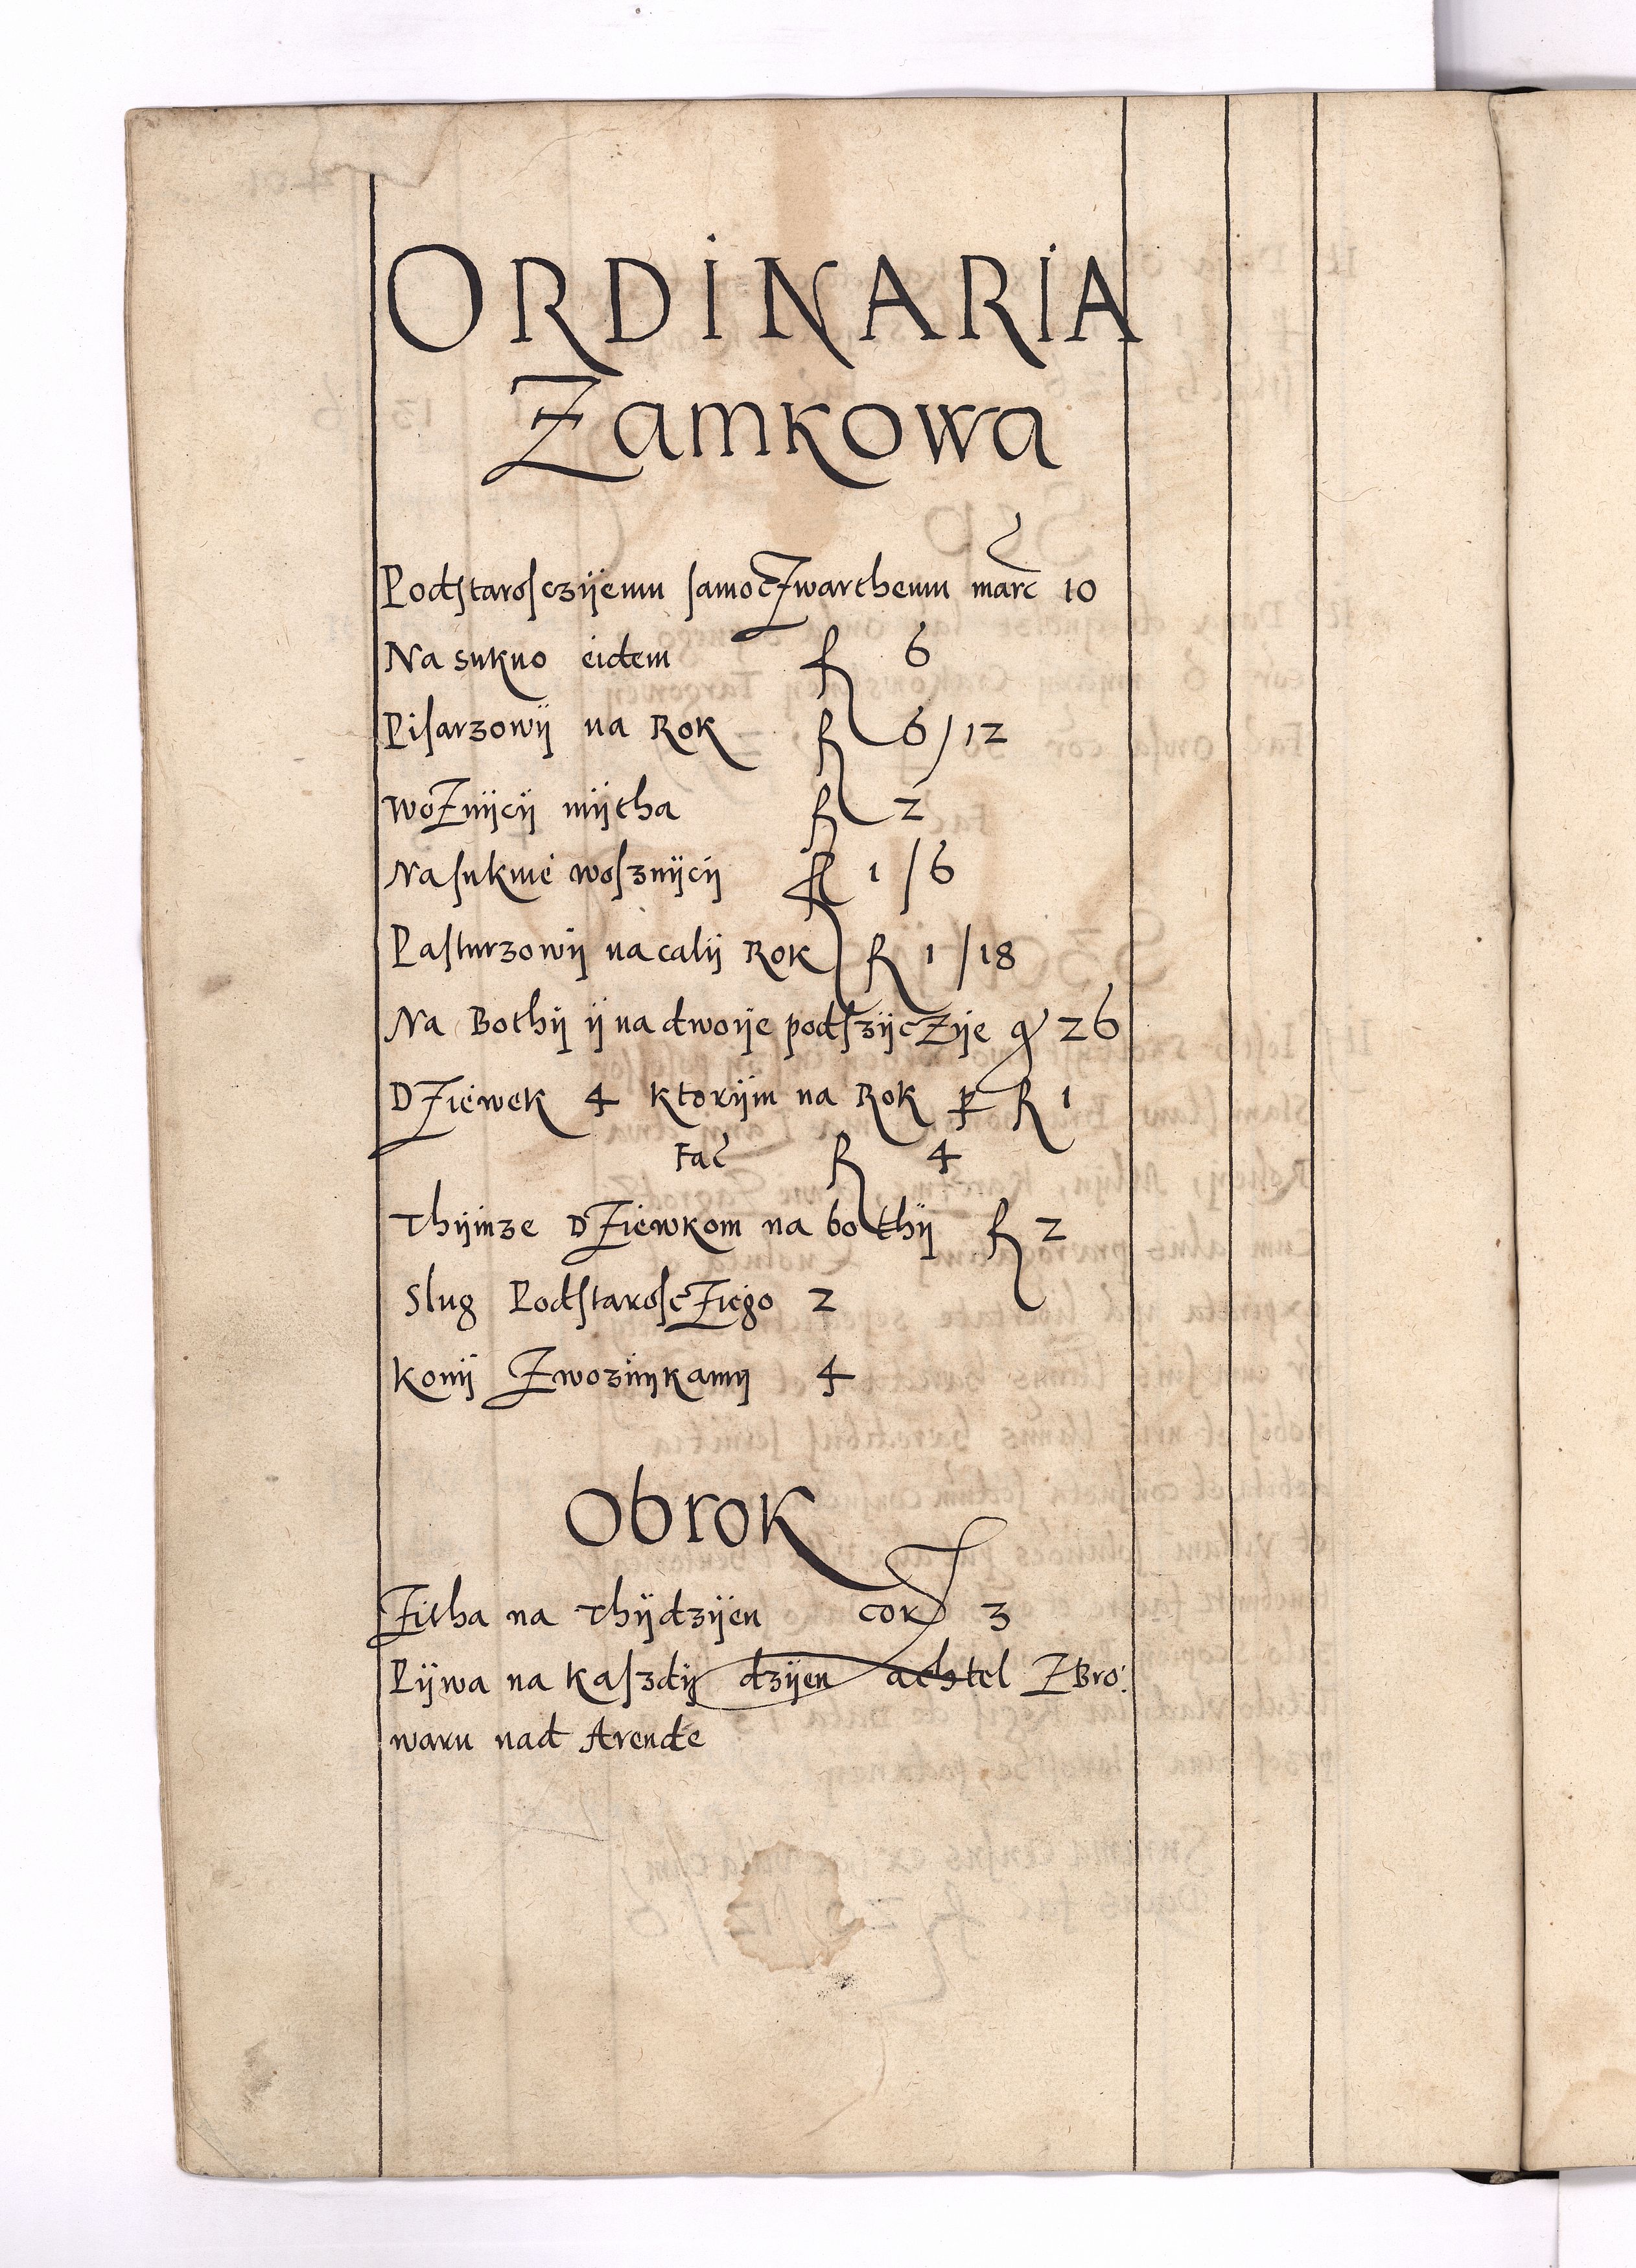 ORDINARIA
Zamkowa
Podstarosczÿemu samoczwarthemu marc 10
Na sukno eidem fl 6
Pisarzowÿ na Rok fl 6/12
woznÿcÿ mÿtha fl 2
Na suknie wosznÿcÿ fl 1/6
Pasturzowÿ na calÿ Rok fl 1/18
Na Bothÿ ÿ na dwoÿe podszÿczÿe gr 26
Dziewek 4 ktorÿm na Rok per fl 1
Fac fl 4
Thÿmze Dziewkom na bothÿ fl 2
Slug Podstarosčziego 2
konÿ Zwoznÿkamÿ 4
Obrok
Zitha na Thÿdzÿen cor 3
Pÿwa na kaszdÿ dzÿen achtel Z Bro:
waru nad Arende